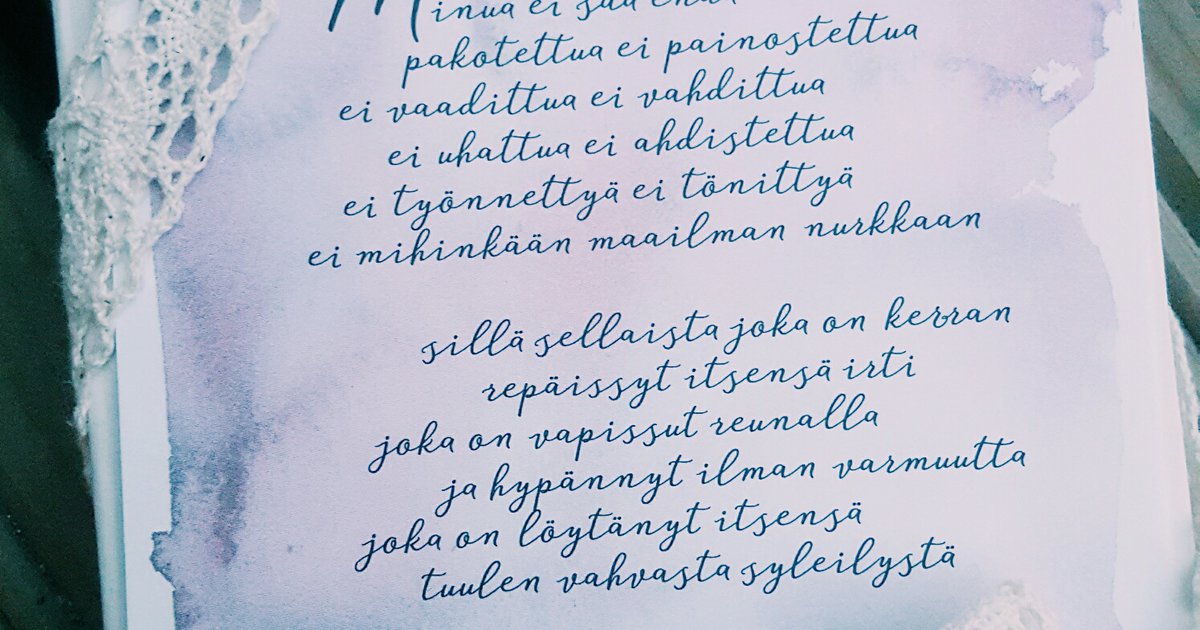 Minua ei saa enää
pakotettua ei painostettua
ei vaadittua ei vahdittua
ei uhattua ei ahdistettua
ei työnnettyä ei tönittyä
ei mihinkään maailman nurkkaan
sillä sellaista joka on kerran
repäissyt itsensä irti
joka on vapissut reunalla
ja hypännyt ilman varmuutta
joka on löytänyt itsensä
tuulen vahvasta syleilystä